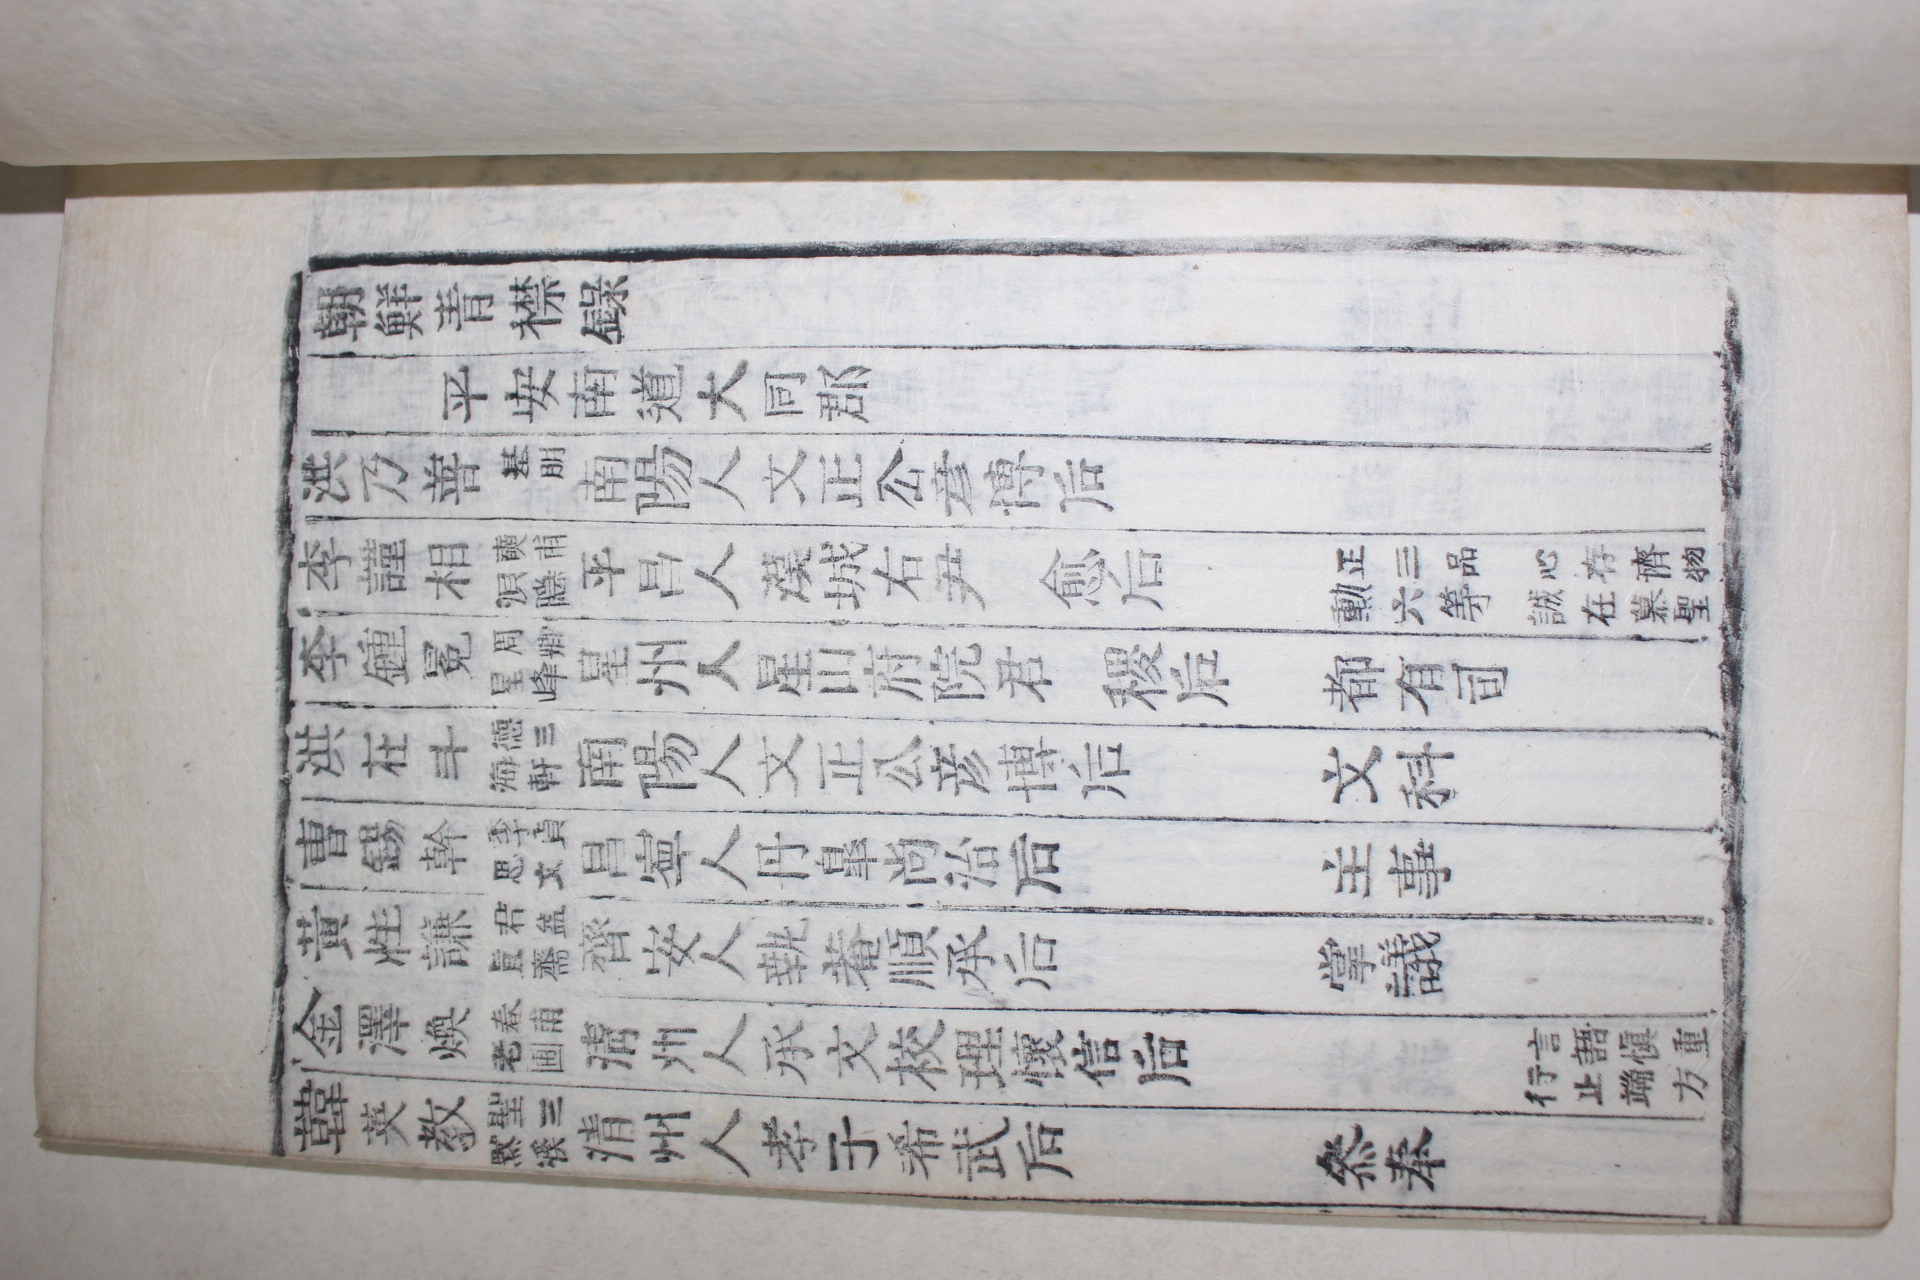 朝鮮青襟錄
平安南道大同郡
洪乃善 基朋 南陽人文正公彦博后
李謹相 奭甫 浿隱 平昌人漢城右尹 愈后 正三品 勳六等 心存濟物 誠在慕聖
李鍾冕 周卿 星峰 星州人星山府院君 稷后 都有司
洪在斗 德三 海軒 南陽人文正公彦博后 文科
曺錫幹 李貞 思文 昌寧人丹皐尚治后 主事
黃性謙 君益 直齋 齊安人執菴順承后 掌議
金澤煥 春甫 老圃 清州人承文校理懷信后 言語愼重 行止端方
韓英教 聖三 默溪 清州人孝子希武后 叅奉